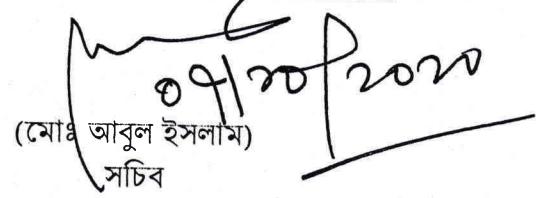 ০৭/১০/২০২০
(মোঃ আবুল ইসলাম)
সচিব